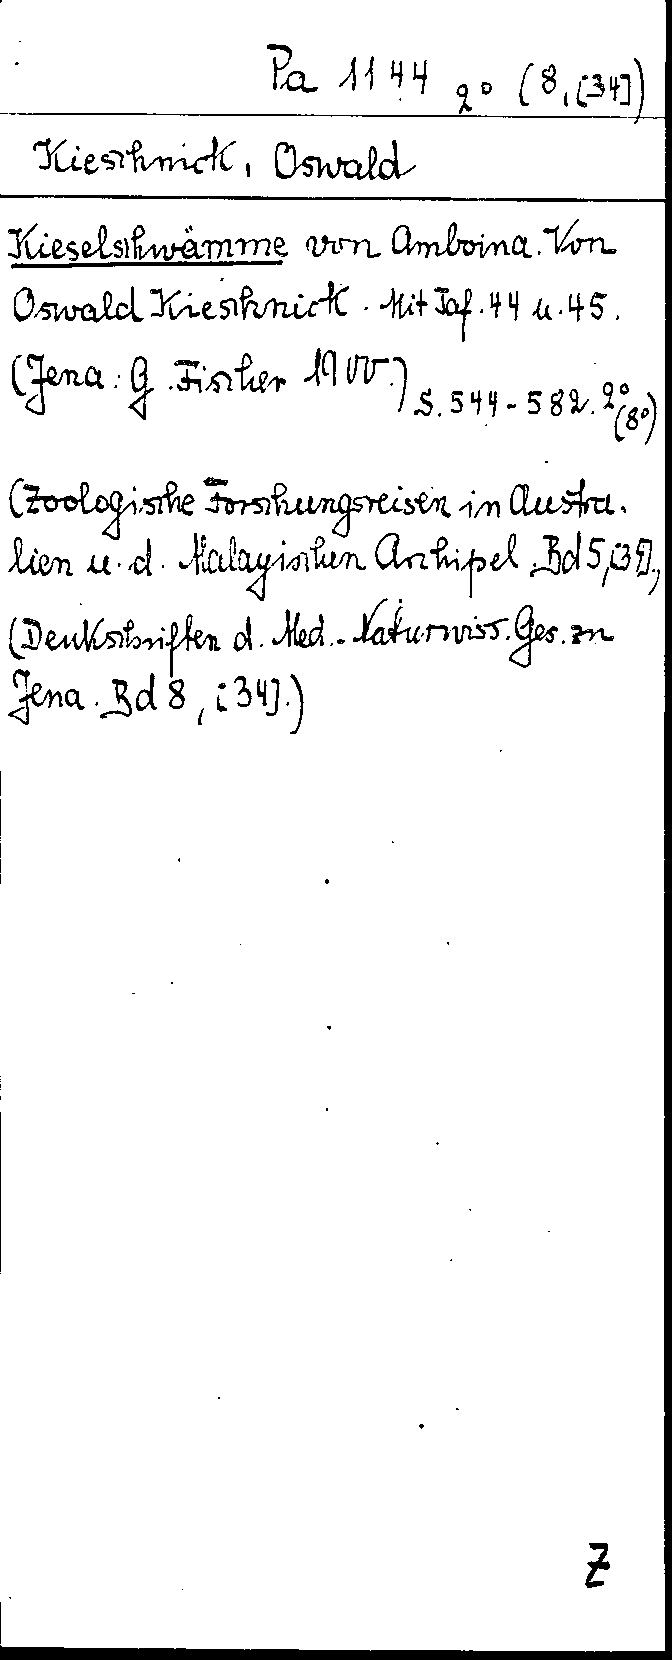 Pa 1144 2° (8,[34])
Kieschnick, Oswald
Kieselschwämme von Amboina. Von
Oswald Kieschnick. Mit Taf. 44 u. 45.
(Jena: G. Fischer 1900.) S. 544-582. 2° (8°)
(Zoologische Forschungsreisen in Austra-
lien u. d. Malayischen Archipel Bd 5,
(Denkschriften d. Med.-Naturwiss. Ges. zu
Jena. Bd 8, [34].)
Z